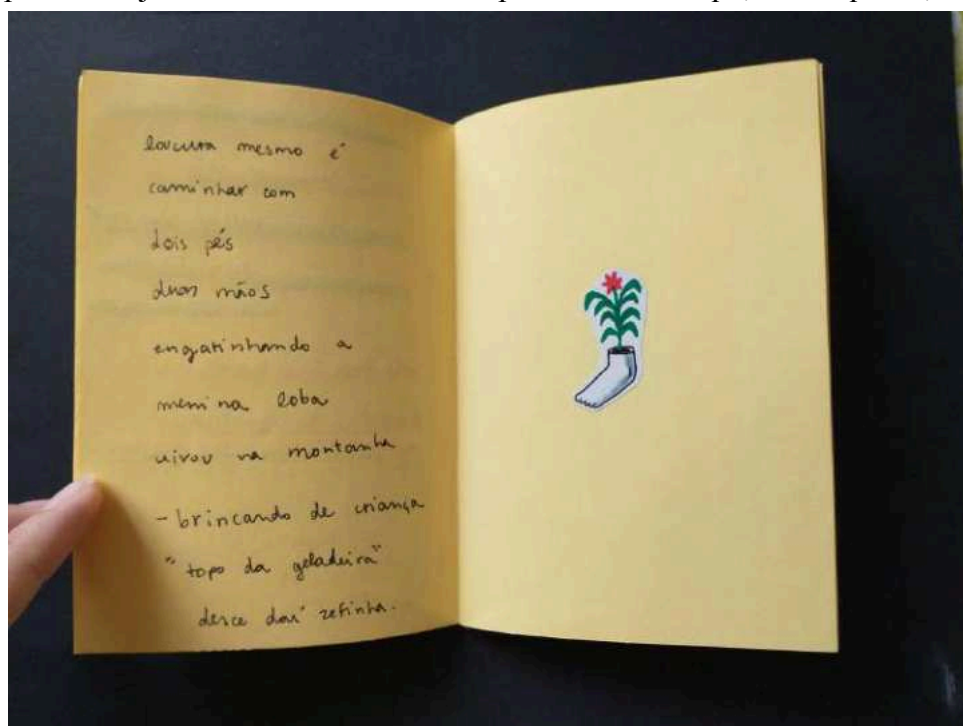 loucura mesmo é
caminhar com
dois pés
duas mãos
engatinhando a
menina loba
uivou na montanha
- brincando de criança
"topo da geladeira"
desce daí zefinha.